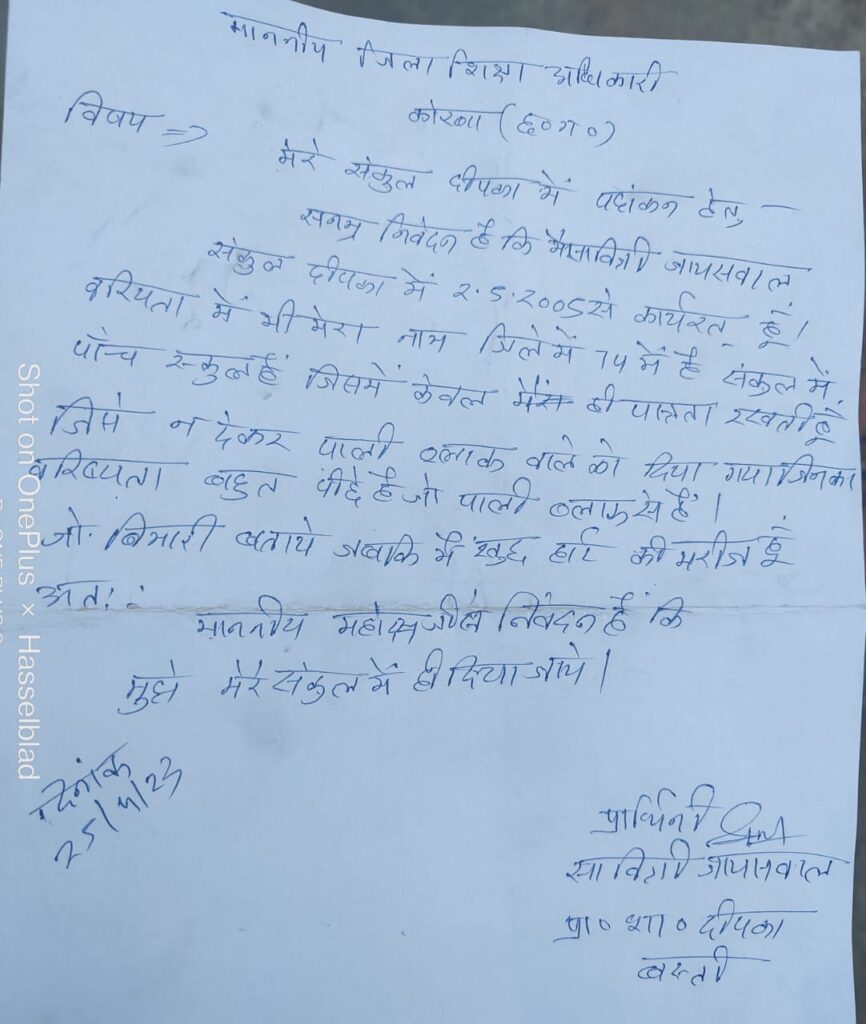 माननीय जिला शिक्षा अधिकारी
कोरबा (छ०ग०)
विषय =>
मेरे संकुल दीपका में पदांकन हेतु —
सनम्र निवेदन है कि मैं सावित्री जायसवाल
संकुल दीपका में 2.5.2005 से कार्यरत हूँ।
वरियता में भी मेरा नाम जिले में 74 में है संकुल में
पाँच स्कुल हैं जिसमें केवल मैं ही पात्रता रखती हूँ
जिसे न देकर पाली ब्लाक वाले को दिया गया जिनका
वरिष्यता बहुत पीछे है जो पाली ब्लाक से हैं।
जो बिमारी बताये जबकि मैं खुद हार्ट की मरीज हूँ
अतः
माननीय महोदय जी से निवेदन है कि
मुझे मेरे संकुल में ही दिया जाये।
दिनांक
25/4/23
प्रार्थिनी
सावित्री जायसवाल
प्रा० शा० दीपका
बस्ती
Shot on OnePlus × Hasselblad